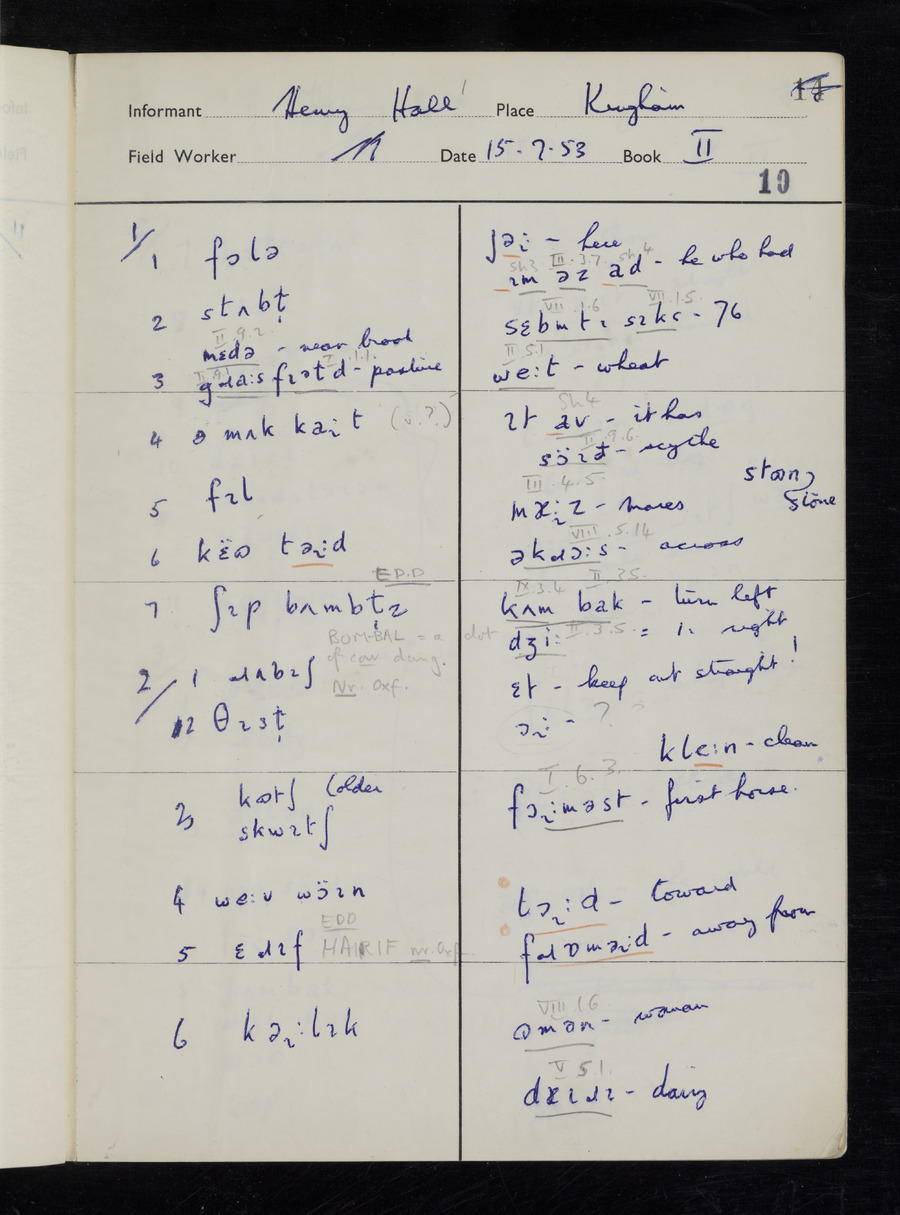 Informant Henry Hall Place Kingham
Field Worker Date 15.7.53 Book II
10
1/
1 fɔlə
2 stʌbt̩
II.9.2.
mɛdə - near brook
3 - pasture
4 ə mʌk (v.?)
5 fɪl
6 kɛ̈ɷ təɪːd
EDD
7 ʃɪp bʌmbt̩z
BOM-BAL = a clot
of cow dung.
Nr. Oxf.
2/
1 ɹʌbɪʃ
2 θɪst̩
3 kɷtʃ (older
skwɪtʃ
4 we:v wɔ̈ɪn
EDD
5 ɛɹɪf HAIRIF nr. Oxf
6 kəɪːlɪk
- here
Sh3 III.3.7. Sh4
ɪm əz ad - he who had
VII.1.6 VII.1.5.
sɛbmtɪ sɪks - 76
II.5.1
we:t - wheat
Sh4
ɪt av - it has
II.9.6.
- scythe
stɷn,
stone
III.4.5.
- mares
VIII.5.14
əkɹɔːs - across
IX.3.4 II.3.5.
kʌm bak - turn left
dʒi: II.3.5. = right
ɛt - keep out straight!
- ?
kle:n - clean
I.6.3.
fɔɪːməst - first horse.
təɪːd - toward
fɹɒməɪd - away from
VIII.1.6
ɷmən - woman
V.5.1.
- dairy